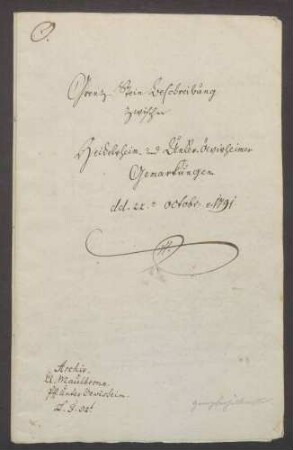 Grentz Stein Beschreibung
zwischen
Heidelsheim und Unter-Öwisheimer
Gemarkungen
dd. 22.ᵗ Octobr. 1791
Archiv.
Cl. Maulbronn.
Unter Öwisheim.